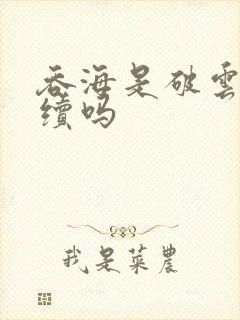 吞海是破雲
續嗎
我是菜農